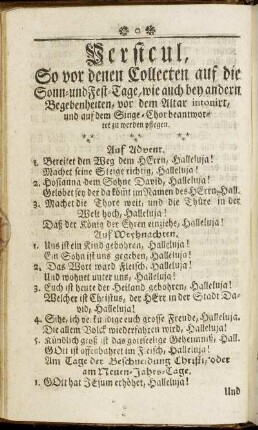 Versicul,
So vor denen Collecten auf die
Sonn-und Fest-Tage, wie auch bey andern
Begebenheiten, vor dem Altar intonirt,
und auf dem Singe-Chor beantwor-
tet zu werden pflegen.
Auf Advent.
1. Bereitet den Weg dem HErrn, Halleluja!
Machet seine Steige richtig, Halleluja!
2. Hosianna dem Sohne David, Halleluja!
Gelobet sey der da kömt im Namen des HErrn, Hall.
3. Machet die Thore weit, und die Thüre in der
Welt hoch, Halleluja!
Daß der König der Ehren einziehe, Halleluja!
Auf Weyhnachten.
1. Uns ist ein Kind gebohren, Halleluja!
Ein Sohn ist uns gegeben, Halleluja!
2. Das Wort ward Fleisch, Halleluja!
Und wohnet unter uns, Halleluja!
3. Euch ist heute der Heiland gebohren, Halleluja!
Welcher ist Christus, der HErr in der Stadt Da-
vid, Halleluja!
4. Sihe, ich verkündige euch grosse Freude, Halleluja.
Die allem Volck wiederfahren wird, Halleluja!
5. Kündlich groß ist das gottselige Geheimniß, Hall.
GOtt ist offenbahret im Fleisch, Halleluja!
Am Tage der Beschneidung Christi, oder
am Neuen-Jahrs-Tage.
1. GOtt hat JEsum erhöhet, Halleluja!
Und